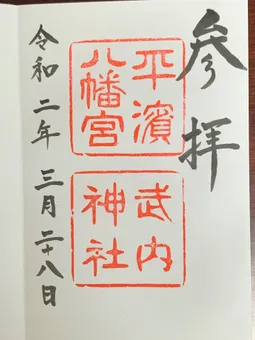 参拝
平濱
八幡宮
武内
神社
令和二年 三月二十八日